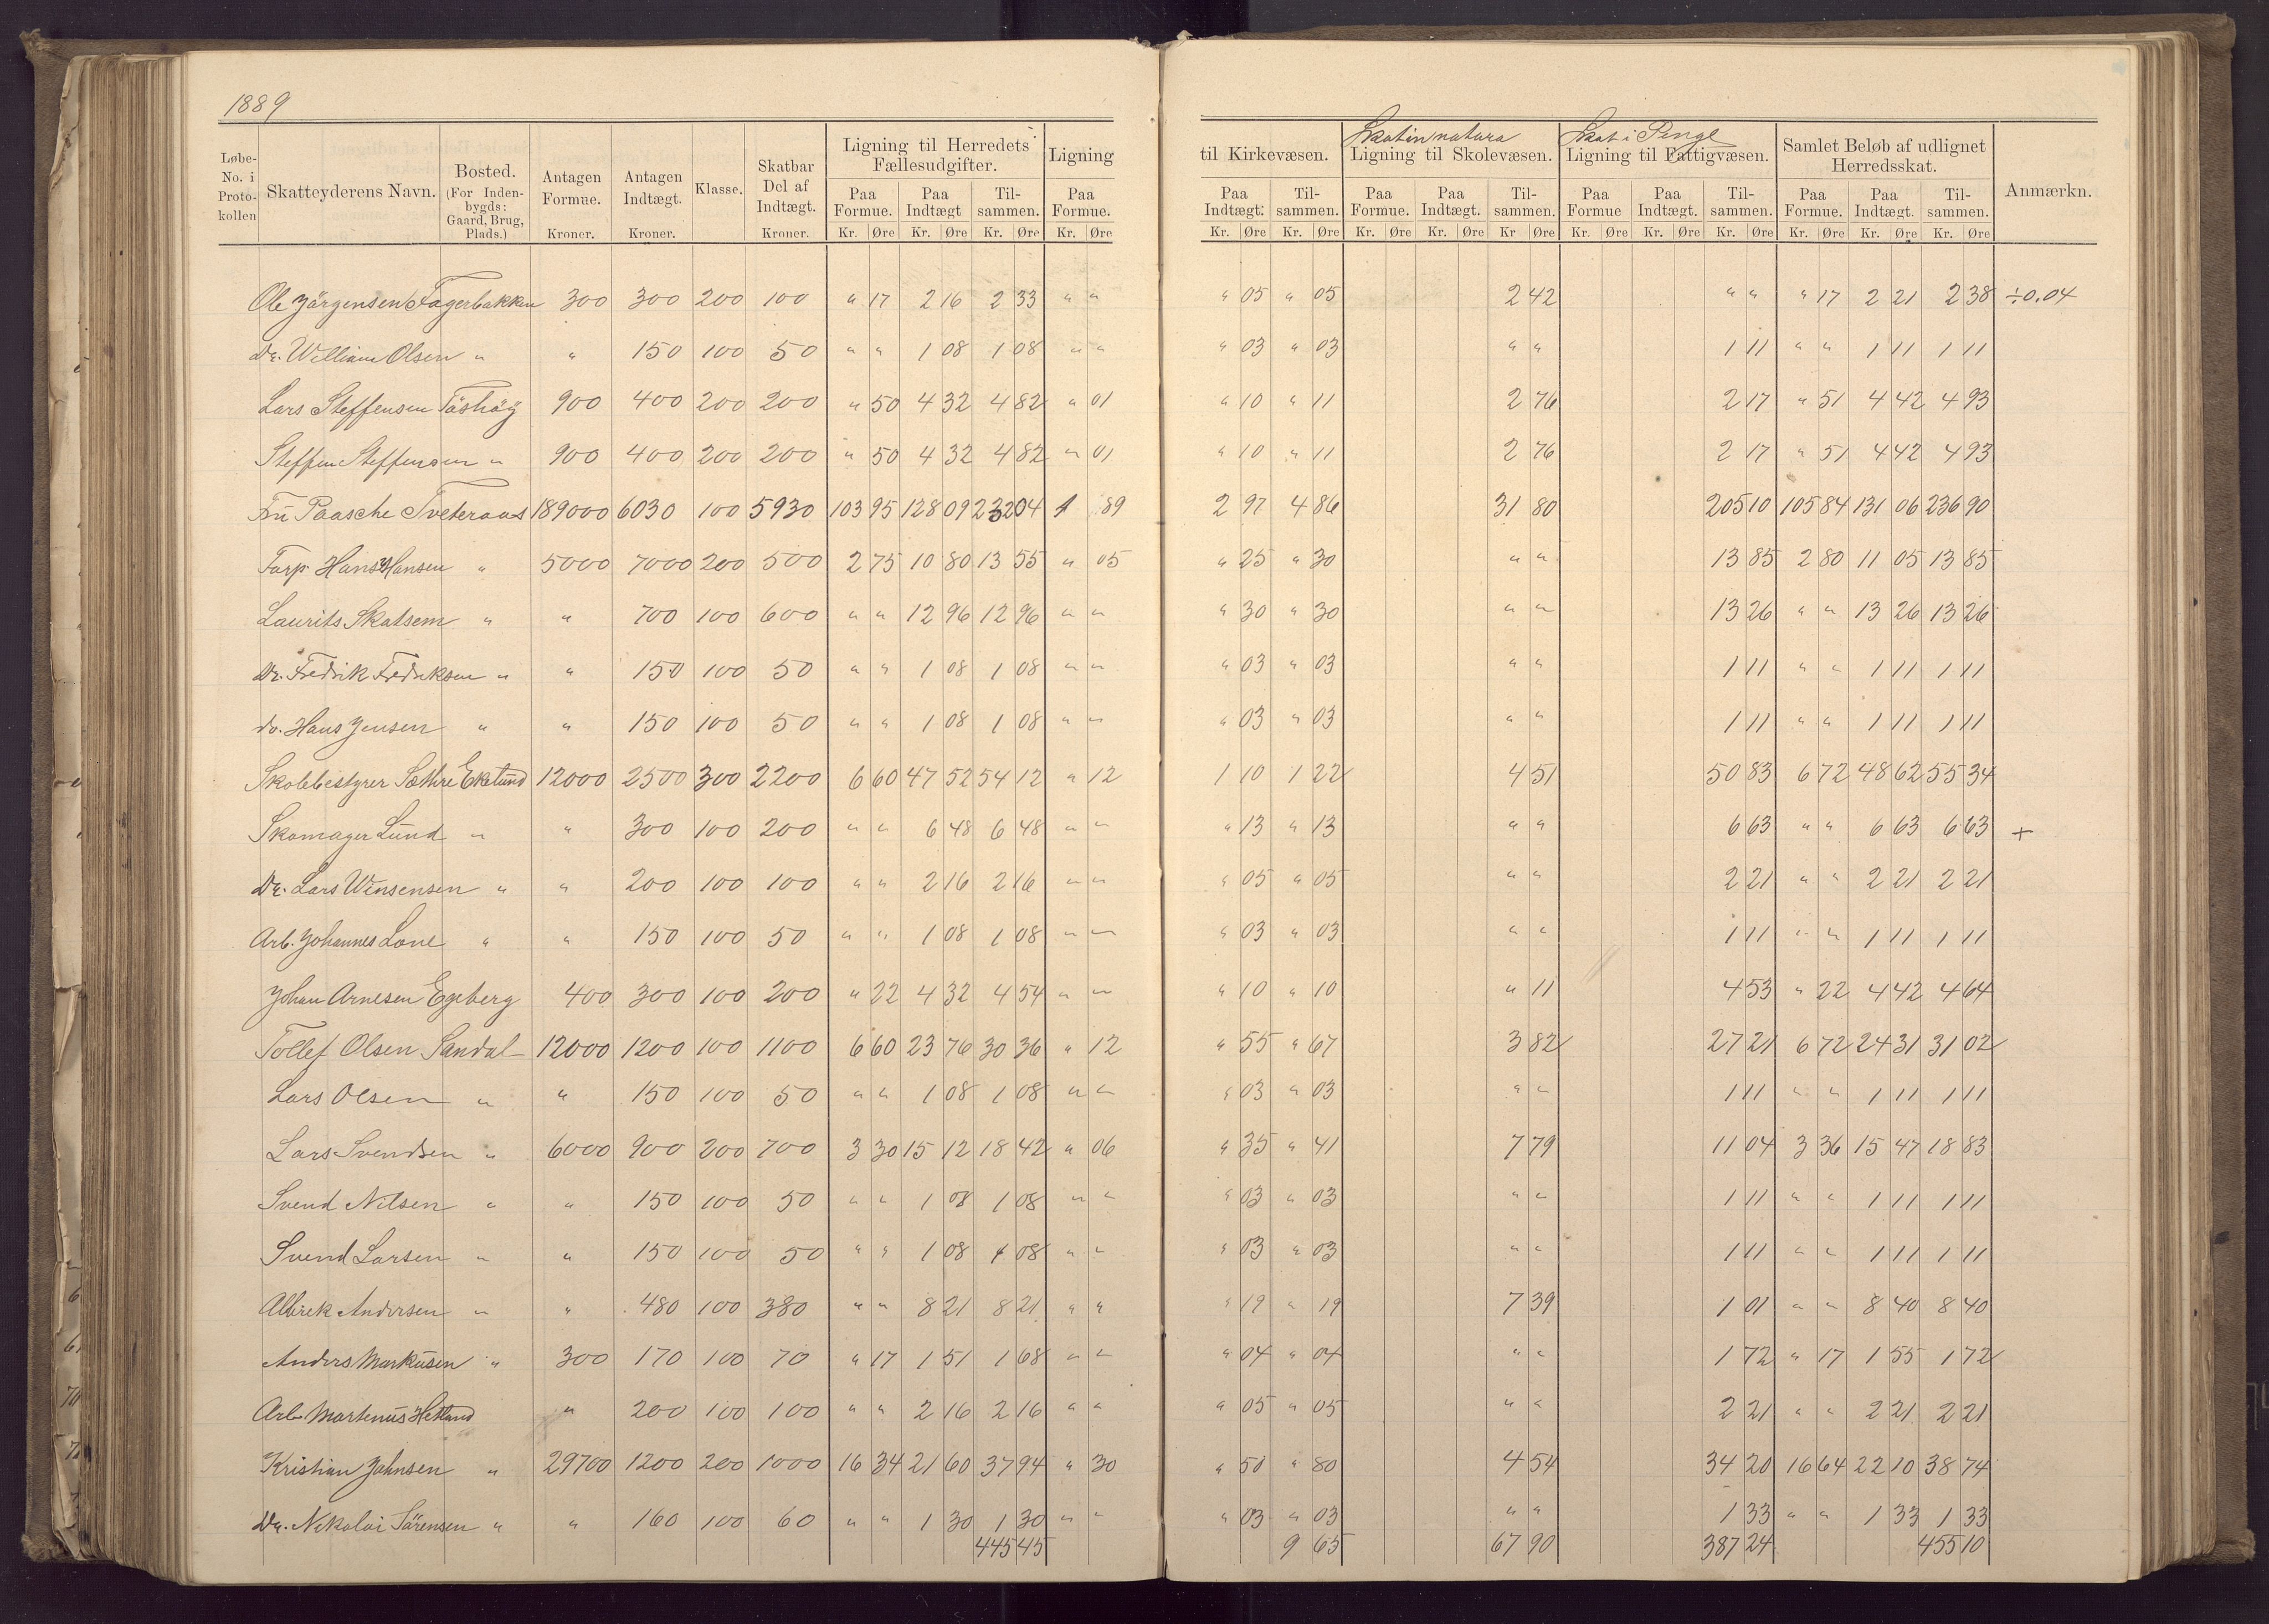 1889
Løbe-No. i Proto-kollen | Skatteyderens Navn. | Bosted. (For Inden-bygds: Gaard, Brug, Plads.) | Antagen Formue. Kroner. | Antagen Indtægt. Kroner. | Klasse. | Skatbar Del af Indtægt. Kroner. | Ligning til Herredets Fællesudgifter. Paa Formue. Kr. Øre | Paa Indtægt Kr. Øre | Til-sammen. Kr. Øre | Ligning Paa Formue. Kr. Øre | til Kirkevæsen. Paa Indtægt. Kr. Øre | Til-sammen. Kr. Øre | Skat in natura Ligning til Skolevæsen. Paa Formue. Kr. Øre | Paa Indtægt. Kr. Øre | Til-sammen. Kr Øre | Skat i Penge Ligning til Fattigvæsen. Paa Formue Kr. Øre | Paa Indtægt. Kr. Øre | Til-sammen. Kr. Øre | Samlet Beløb af udlignet Herredsskat. Paa Formue. Kr. Øre | Paa Indtægt. Kr. Øre | Til-sammen. Kr. Øre | Anmærkn.
Ole Jörgensen Fagerbakken 300 300 200 100 " 17 2 16 2 33 " " " 05 " 05 2 42 " " " 17 2 21 2 38 ÷0.04
Dr. William Olsen " " 150 100 50 " " 1 08 1 08 " " " 03 " 03 " " 1 11 " " 1 11 1 11
Lars Steffensen 900 400 200 200 " 50 4 32 4 82 " 01 " 10 " 11 2 76 2 17 " 51 4 42 4 93
Steffen Steffensen " 900 400 200 200 " 50 4 32 4 82 " 01 " 10 " 11 2 76 2 17 " 51 4 42 4 93
Frü Paasche Tveteraas 189000 6030 100 5930 103 95 128 09 232 04 1 89 2 97 4 86 31 80 205 10 105 84 131 06 236 90
Forp. Hans Hansen " 5000 7000 200 500 2 75 10 80 13 55 " 05 " 25 " 30 " " 13 85 2 80 11 05 13 85
Laurits Skatsem " " 700 100 600 " " 12 96 12 96 " " " 30 " 30 " " 13 26 " " 13 26 13 26
Dr. Fredrik Fredriksen " " 150 100 50 " " 1 08 1 08 " " " 03 " 03 " " 1 11 " " 1 11 1 11
Dr. Hans Jensen " " 150 100 50 " " 1 08 1 08 " " " 03 " 03 " " 1 11 " " 1 11 1 11
Skolebestyrer Sæthre Ekelünd 12000 2500 300 2200 6 60 47 52 54 12 " 12 1 10 1 22 4 51 50 83 6 72 48 62 55 34
Skomager Lünd " " 300 100 200 " " 6 48 6 48 " " " 13 " 13 " " 6 63 " " 6 63 6 63 +
Dr. Lars Winsensen " " 200 100 100 " " 2 16 2 16 " " " 05 " 05 " " 2 21 " " 2 21 2 21
Arb. Johannes Lone " " 150 100 50 " " 1 08 1 08 " " " 03 " 03 " " 1 11 " " 1 11 1 11
Johan Arnesen Egeberg 400 300 100 200 " 22 4 32 4 54 " " " 10 " 10 " 11 4 53 " 22 4 42 4 64
Tollef Olsen Sandal 12000 1200 100 1100 6 60 23 76 30 36 " 12 " 55 " 67 3 82 27 21 6 72 24 31 31 02
Lars Olsen " " 150 100 50 " " 1 08 1 08 " " " 03 " 03 " " 1 11 " " 1 11 1 11
Lars Svendsen " 6000 900 200 700 3 30 15 12 18 42 " 06 " 35 " 41 7 79 11 04 3 36 15 47 18 83
Svend Nilsen " " 150 100 50 " " 1 08 1 08 " " " 03 " 03 " " 1 11 " " 1 11 1 11
Svend Larsen " " 150 100 50 " " 1 08 1 08 " " " 03 " 03 " " 1 11 " " 1 11 1 11
Albrek Andersen " " 480 100 380 " " 8 21 8 21 " " " 19 " 19 7 39 1 01 " " 8 40 8 40
Anders Markusen " 300 170 100 70 " 17 1 51 1 68 " " " 04 " 04 " " 1 72 " 17 1 55 1 72
Arb Martenus Hetland " 200 100 100 " " 2 16 2 16 " " " 05 " 05 " " 2 21 " " 2 21 2 21
Kristian Johnsen " 29700 1200 200 1000 16 34 21 60 37 94 " 30 " 50 " 80 4 54 34 20 16 64 22 10 38 74
Dr. Nikolai Sörensen " " 160 100 60 " " 1 30 1 30 " " " 03 " 03 " " 1 33 " " 1 33 1 33
445 45 9 65 67 90 387 24 455 10